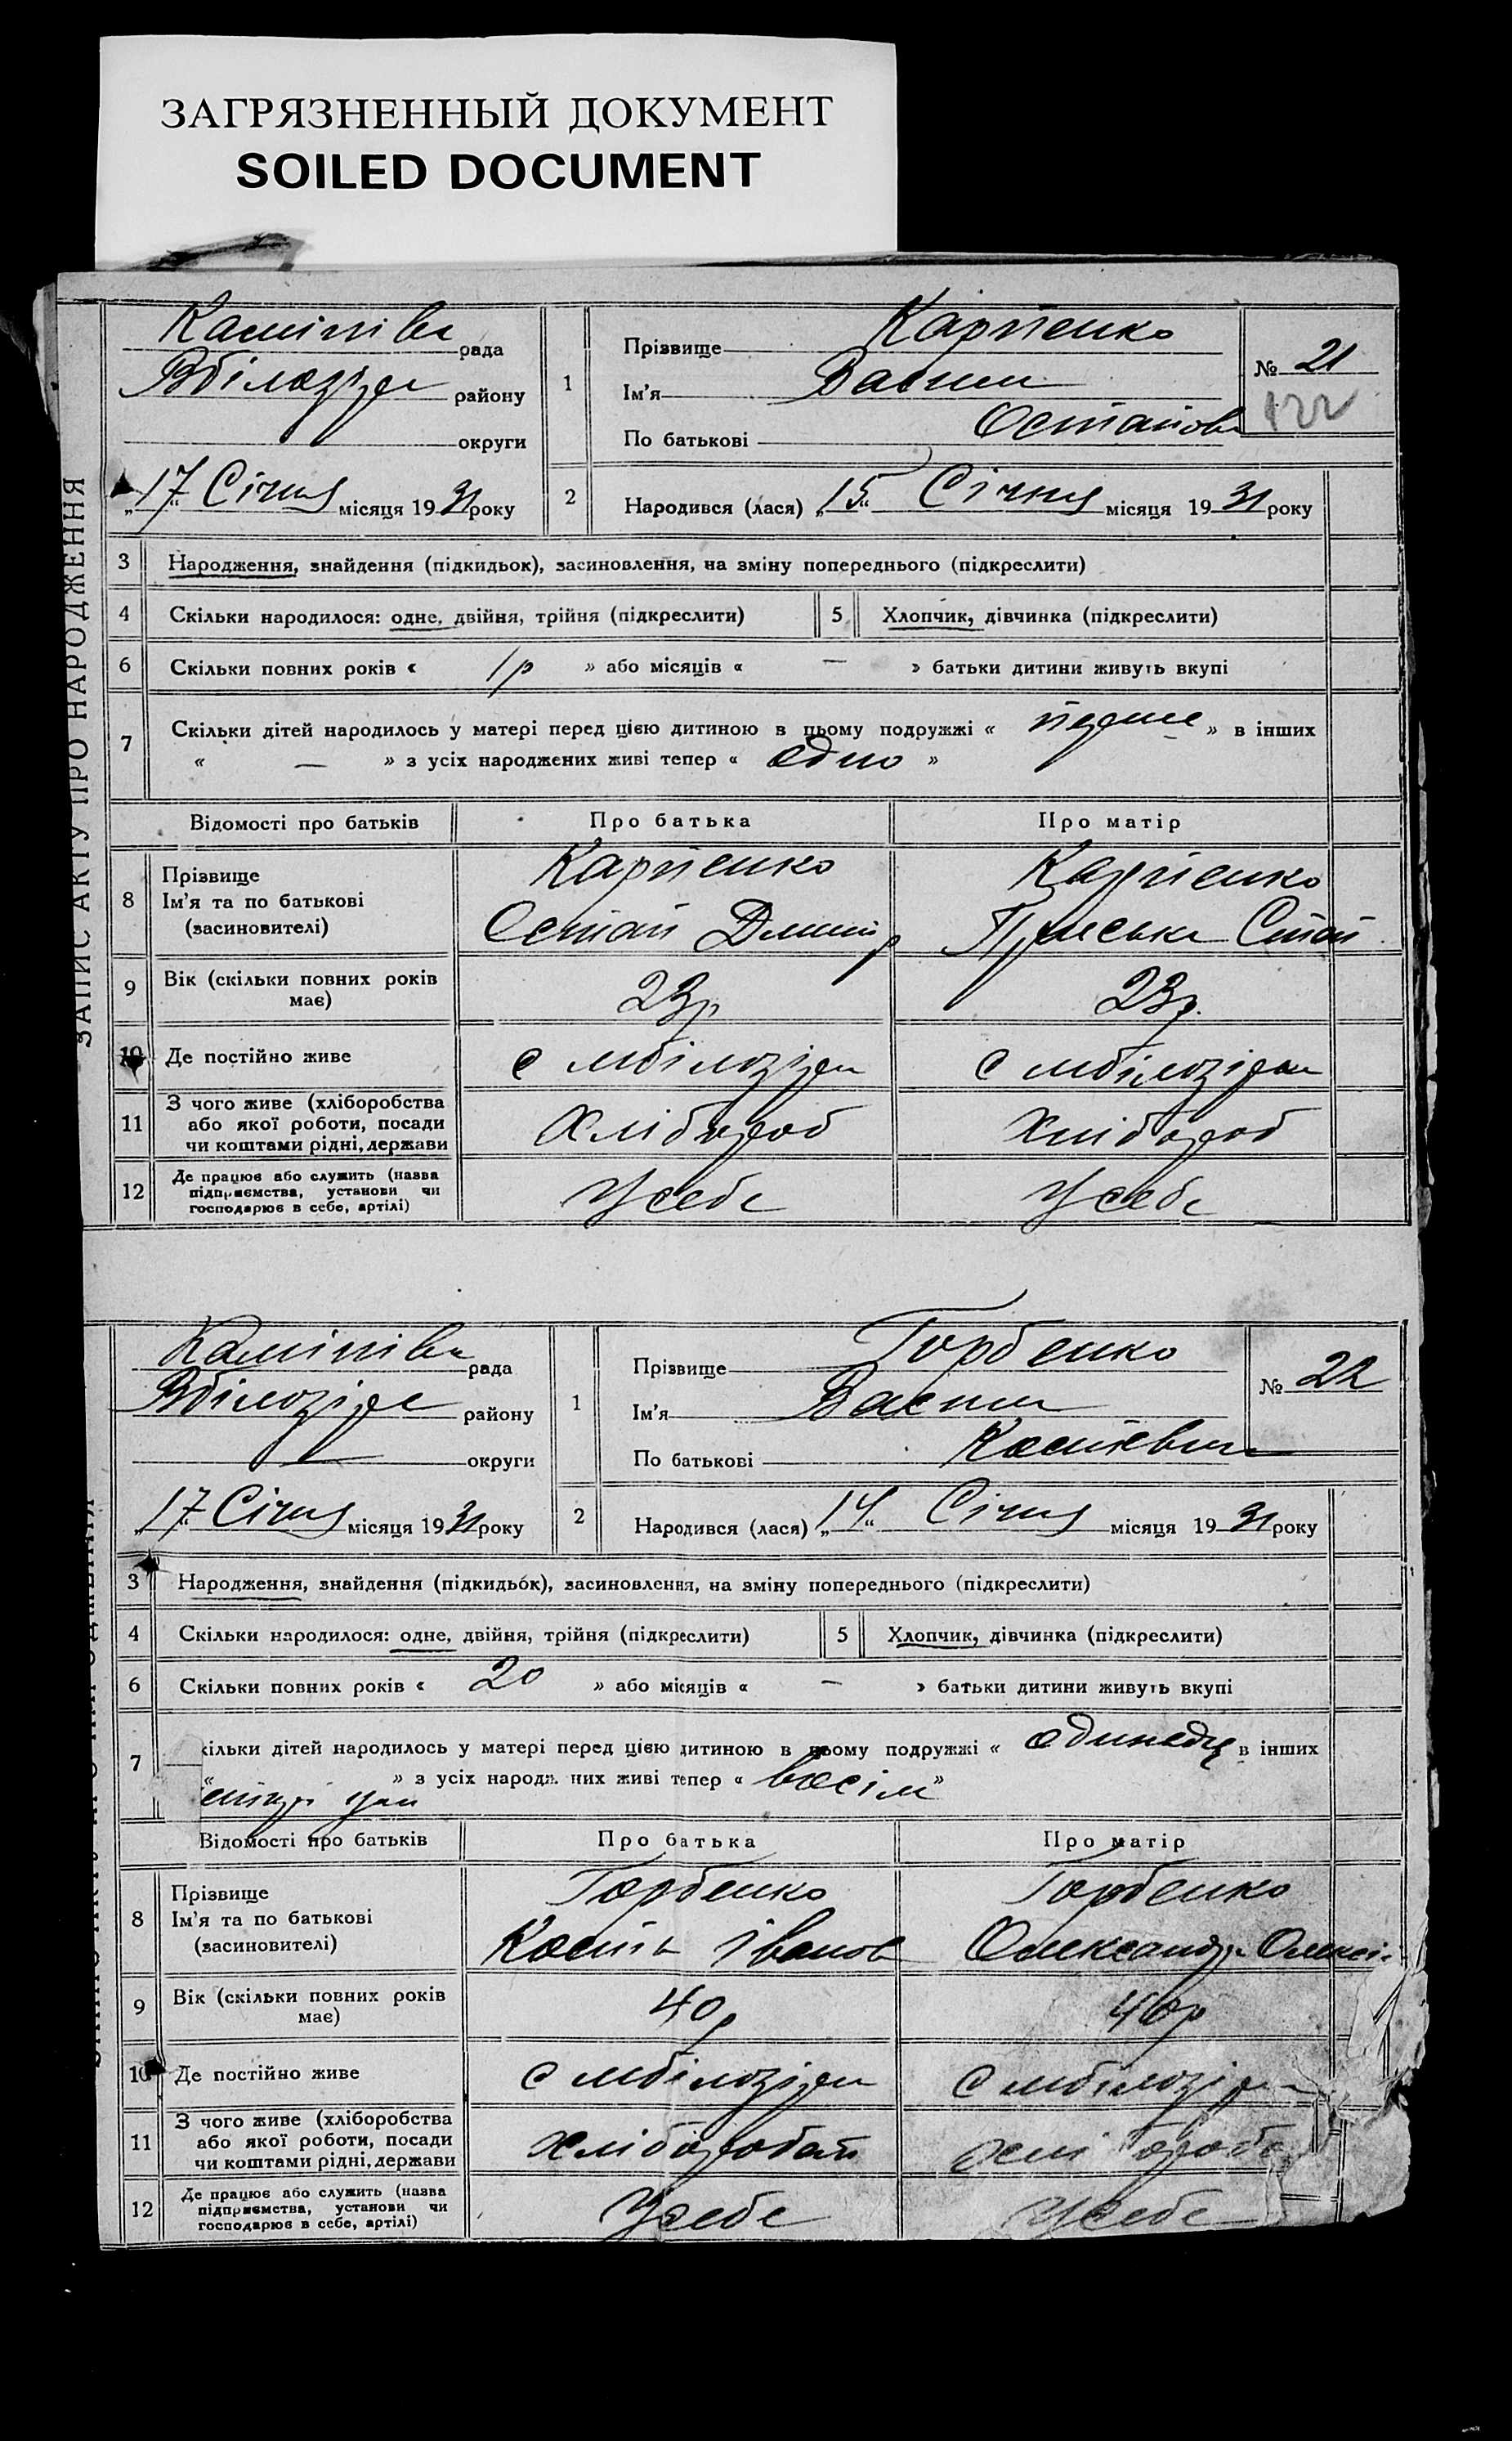 ЗАГРЯЗНЕННЫЙ ДОКУМЕНТ
SOILED DOCUMENT
ЗАПИС АКТУ ПРО НАРОДЖЕННЯ
рада
району
округи
„17“ Січня місяця 1931 року
1
Прізвище Карпенко
Ім'я Васил
По батькові Остапов
№ 21
122
2
Народився (лася) „15“ Січня місяця 1931 року
3 Народження, знайдення (підкидьок), засиновлення, на зміну попереднього (підкреслити)
4 Скільки народилося: одне, двійня, трійня (підкреслити) 5 Хлопчик, дівчинка (підкреслити)
6 Скільки повних років « 1р » або місяців « — » батьки дитини живуть вкупі
7 Скільки дітей народилось у матері перед цією дитиною в цьому подружжі « перше » в інших
« — » з усіх народжених живі тепер « одно »
Відомості про батьків Про батька Про матір
8 Прізвище Карпенко Карпенко
Ім'я та по батькові
(засиновителі) Остап Дмитр
9 Вік (скільки повних років має) 23р 23р.
10 Де постійно живе с с
11 З чого живе (хліборобства або якої роботи, посади чи коштами рідні, держави Хлібороб хлібороб
12 Де працює або служить (назва підприємства, установи чи господарює в себе, артілі) Усебе Усебе
рада
району
округи
„17“ Січня місяця 1931 року
1
Прізвище Горбенко
Ім'я Васил
По батькові
№ 22
2
Народився (лася) „14“ Січня місяця 1931 року
3 Народження, знайдення (підкидьок), засиновлення, на зміну попереднього (підкреслити)
4 Скільки народилося: одне, двійня, трійня (підкреслити) 5 Хлопчик, дівчинка (підкреслити)
6 Скільки повних років « 20 » або місяців « — » батьки дитини живуть вкупі
7 кільки дітей народилось у матері перед цією дитиною в цьому подружжі « в інших
» з усіх народжених живі тепер « восім »
Відомості про батьків Про батька Про матір
8 Прізвище Горбенко Горбенко
Ім'я та по батькові
(засиновителі) Іванов Олександра Олексі
9 Вік (скільки повних років має) 40р 40р
10 Де постійно живе с с
11 З чого живе (хліборобства або якої роботи, посади чи коштами рідні, держави
12 Де працює або служить (назва підприємства, установи чи господарює в себе, артілі) Усебе Усебе